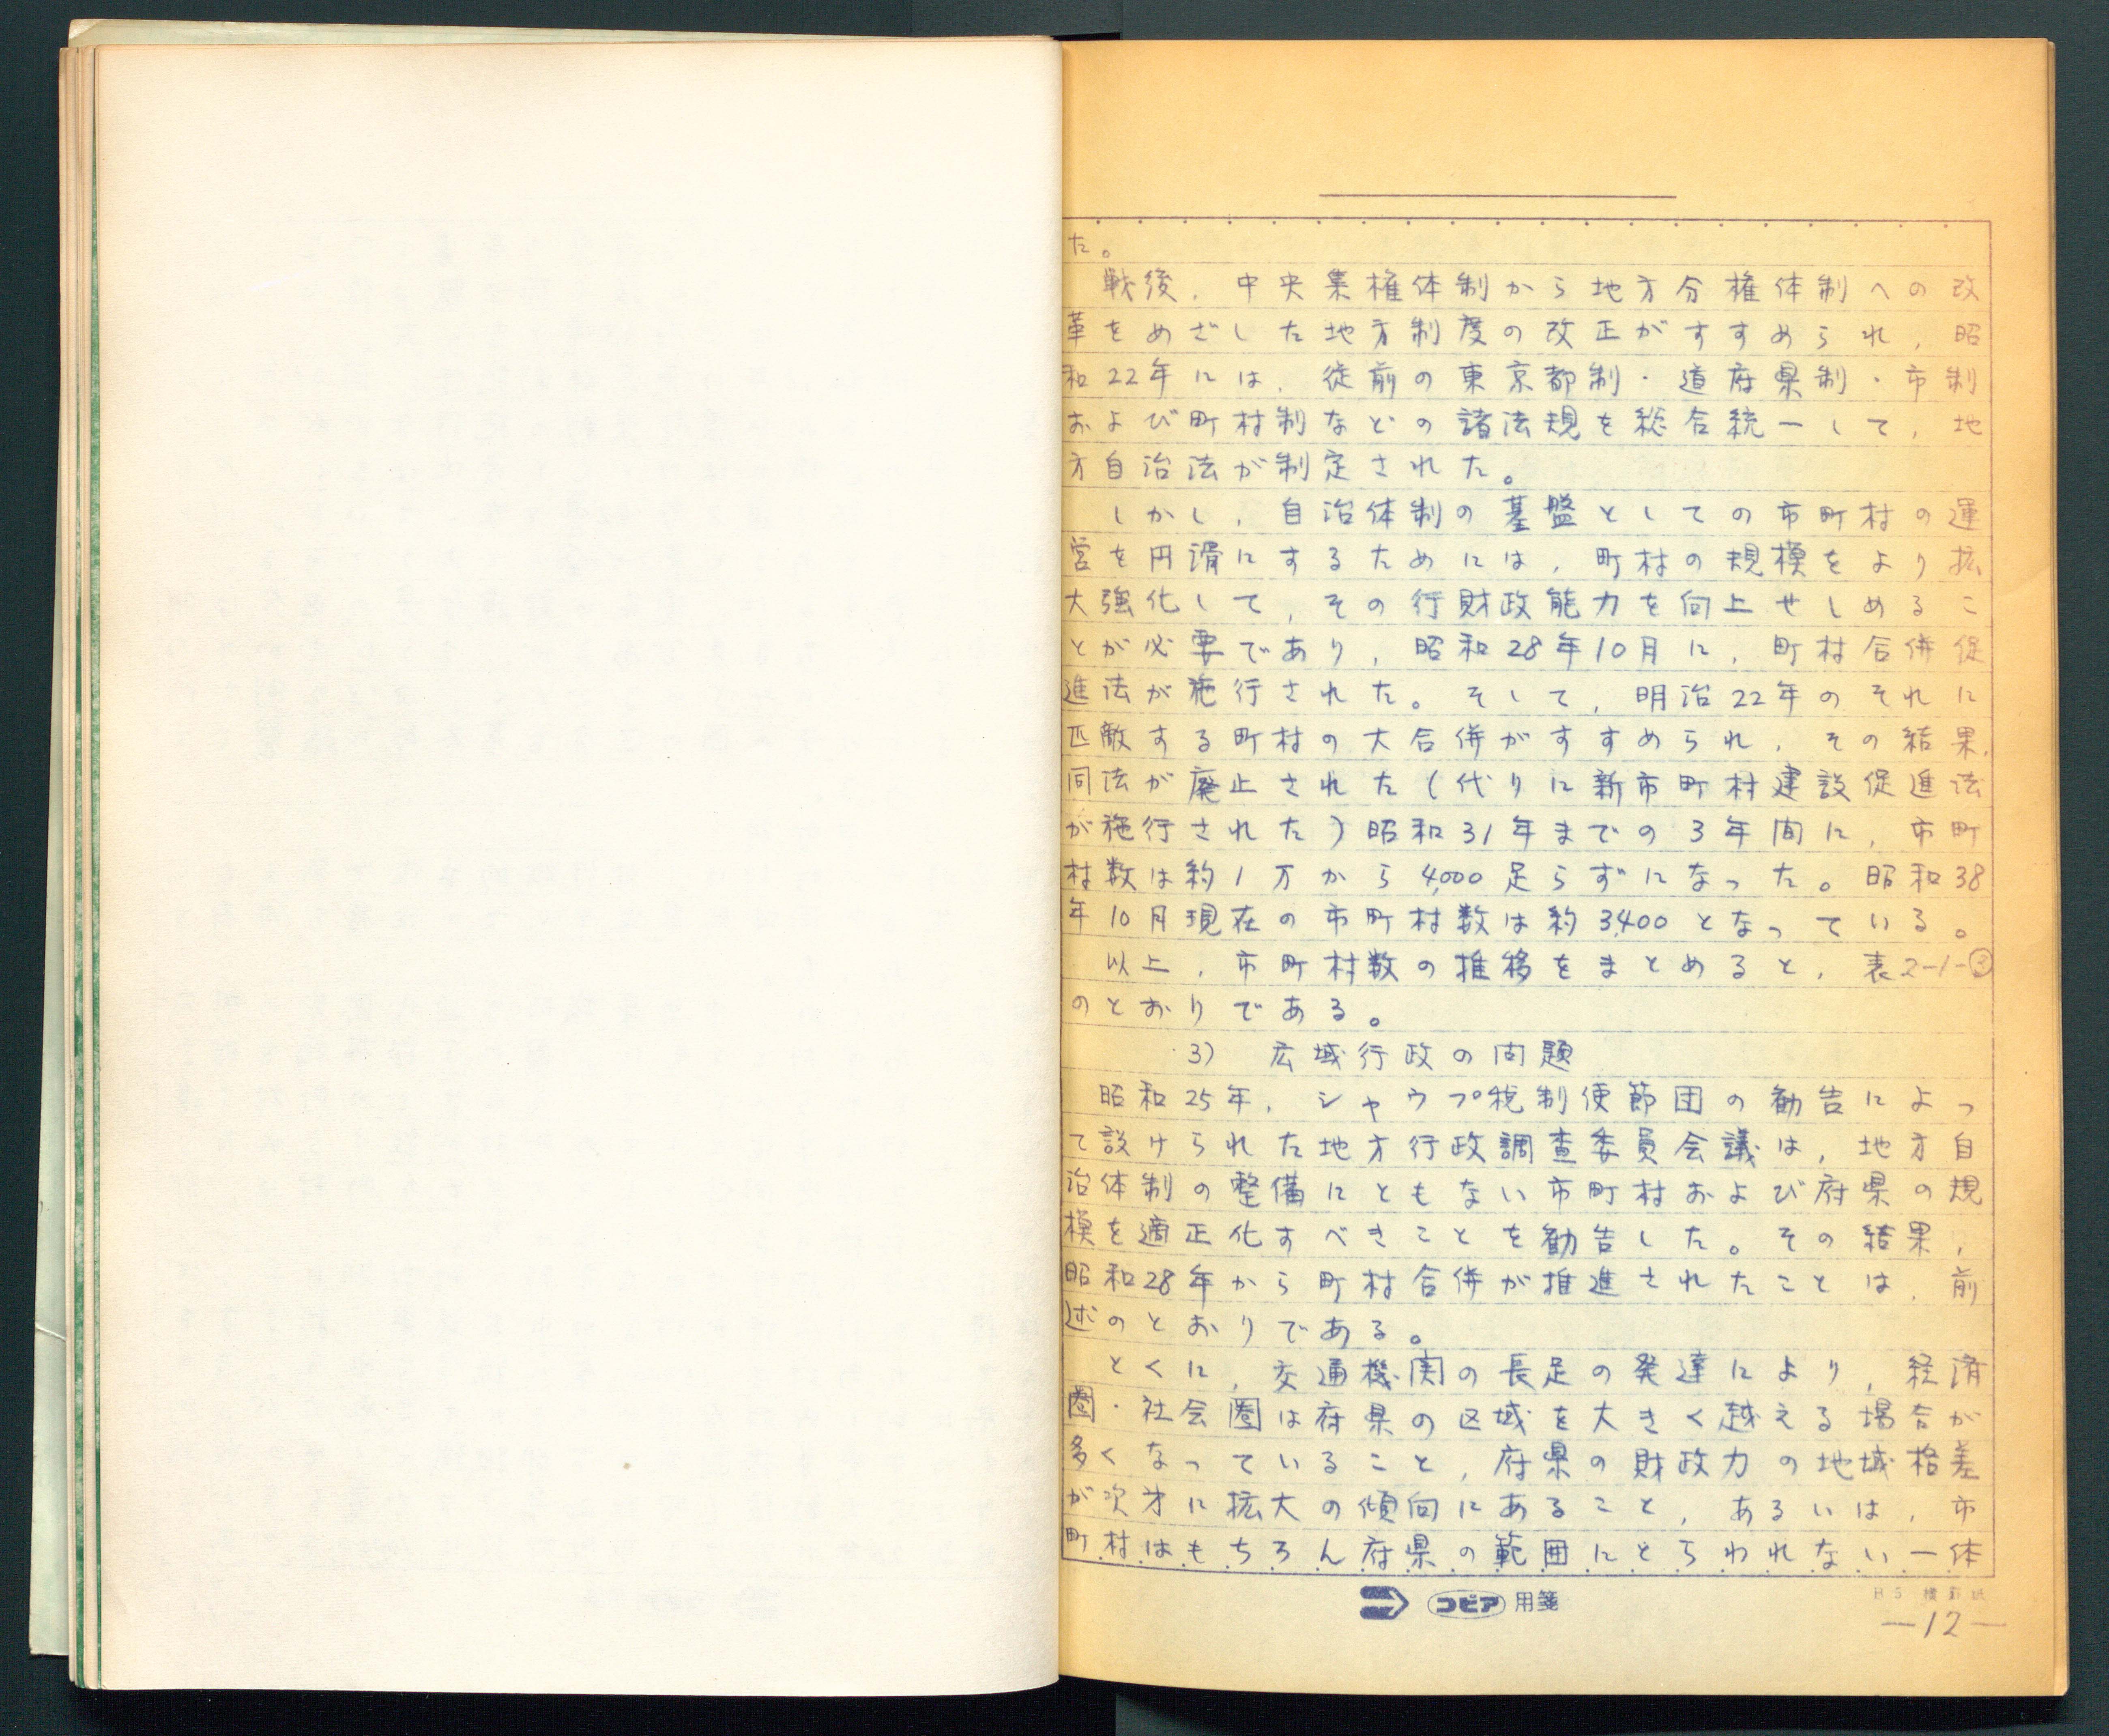 た。
戦後，中央集権体制から地方分権体制への改
革をめざした地方制度の改正がすすめられ，昭
和22年には，従前の東京都制・道府県制・市制
および町村制などの諸法規を総合統一して，地
方自治法が制定された。
しかし，自治体制の基盤としての市町村の運
営を円滑にするためには，町村の規模をより拡
大強化して，その行財政能力を向上せしめるこ
とが必要であり，昭和28年10月に，町村合併促
進法が施行された。そして，明治22年のそれに
匹敵する町村の大合併がすすめられ，その結果，
同法が廃止された（代りに新市町村建設促進法
が施行された）昭和31年までの3年間に，市町
村数は約1万から4,000足らずになった。昭和38
年10月現在の市町村数は約3,400となっている。
以上，市町村数の推移をまとめると，表2-1-③
のとおりである。
3） 広域行政の問題
昭和25年，シャウプ税制使節団の勧告によっ
て設けられた地方行政調査委員会議は，地方自
治体制の整備にともない市町村および府県の規
模を適正化すべきことを勧告した。その結果，
昭和28年から町村合併が推進されたことは，前
述のとおりである。
とくに，交通機関の長足の発達により，経済
圏・社会圏は府県の区域を大きく越える場合が
多くなっていること，府県の財政力の地域格差
が次才に拡大の傾向にあること，あるいは，市
町村はもちろん府県の範囲にとらわれない一体
コピア 用箋
—12—